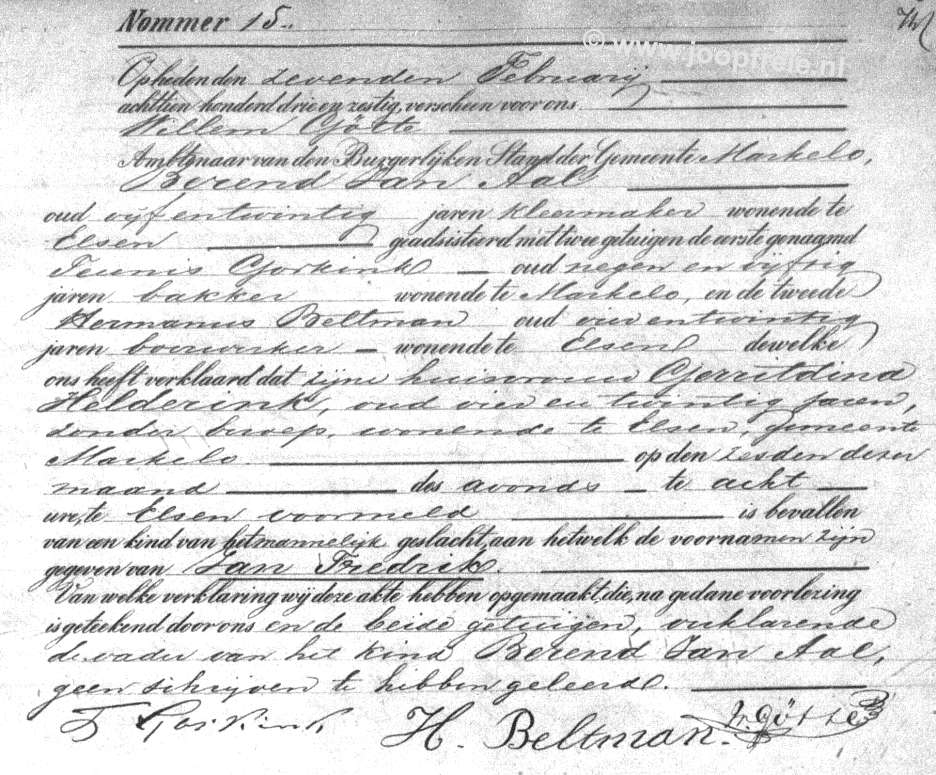 Nommer 15.
© www.joopfriele.nl
Opheden den zevenden Februarij
achttien honderd drie en zestig, verscheen voor ons
Willem Götte
Ambtenaar van den Burgerlijken Stand der Gemeente Markelo,
Berend Jan Aal
oud vijf en twintig jaren kleermaker wonende te
Elsen geadsisteerd met twee getuigen de eerste genaamd
Teunis Gorkink oud negen en vijftig
jaren bakker wonende te Markelo, en de tweede
Hermanus Beltman oud vier en twintig
jaren bouwerker wonende te Elsen dewelke
ons heeft verklaard dat zijne huisvrouw Gerritdina
Helderink, oud vier en twintig jaren,
zonder beroep, wonende te Elsen, gemeente
Markelo op den zesden dezer
maand des avonds te acht
ure, te Elsen voormeld is bevallen
van een kind van het mannelijk geslacht, aan hetwelk de voornamen zijn
gegeven van Jan Fredrik.
Van welke verklaring wij deze akte hebben opgemaakt, die, na gedane voorlezing
is geteekend door ons en de beide getuigen, verklarende
de vader van het kind Berend Jan Aal,
geen schrijven te hebben geleerd.
T Gorkink H. Beltman. W. Götte